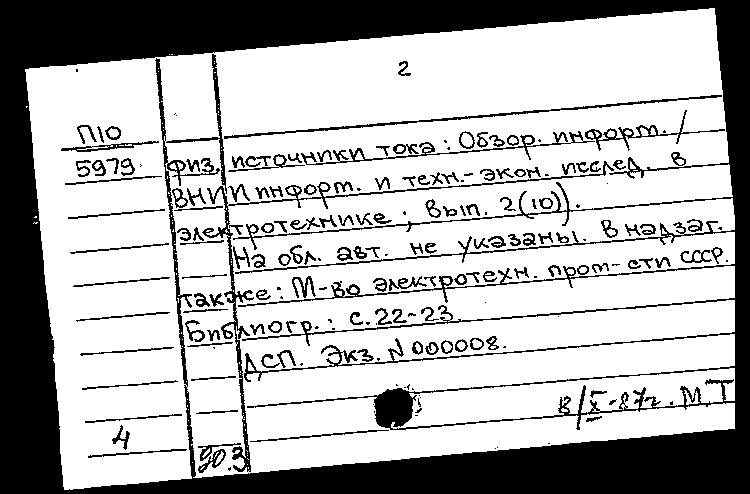 2
П10
5979 физ. источники тока : Обзор. информ. /
ВНИИ информ. и техн.-экон. исслед. в
электротехнике ; Вып. 2(10)).
На обл. авт. не указаны. В надзаг.
также : М-во электротехн. пром-сти СССР.
Библиогр. : с. 22-23.
ДСП. Экз. N 000008.
8/X-87г. М.Т
4